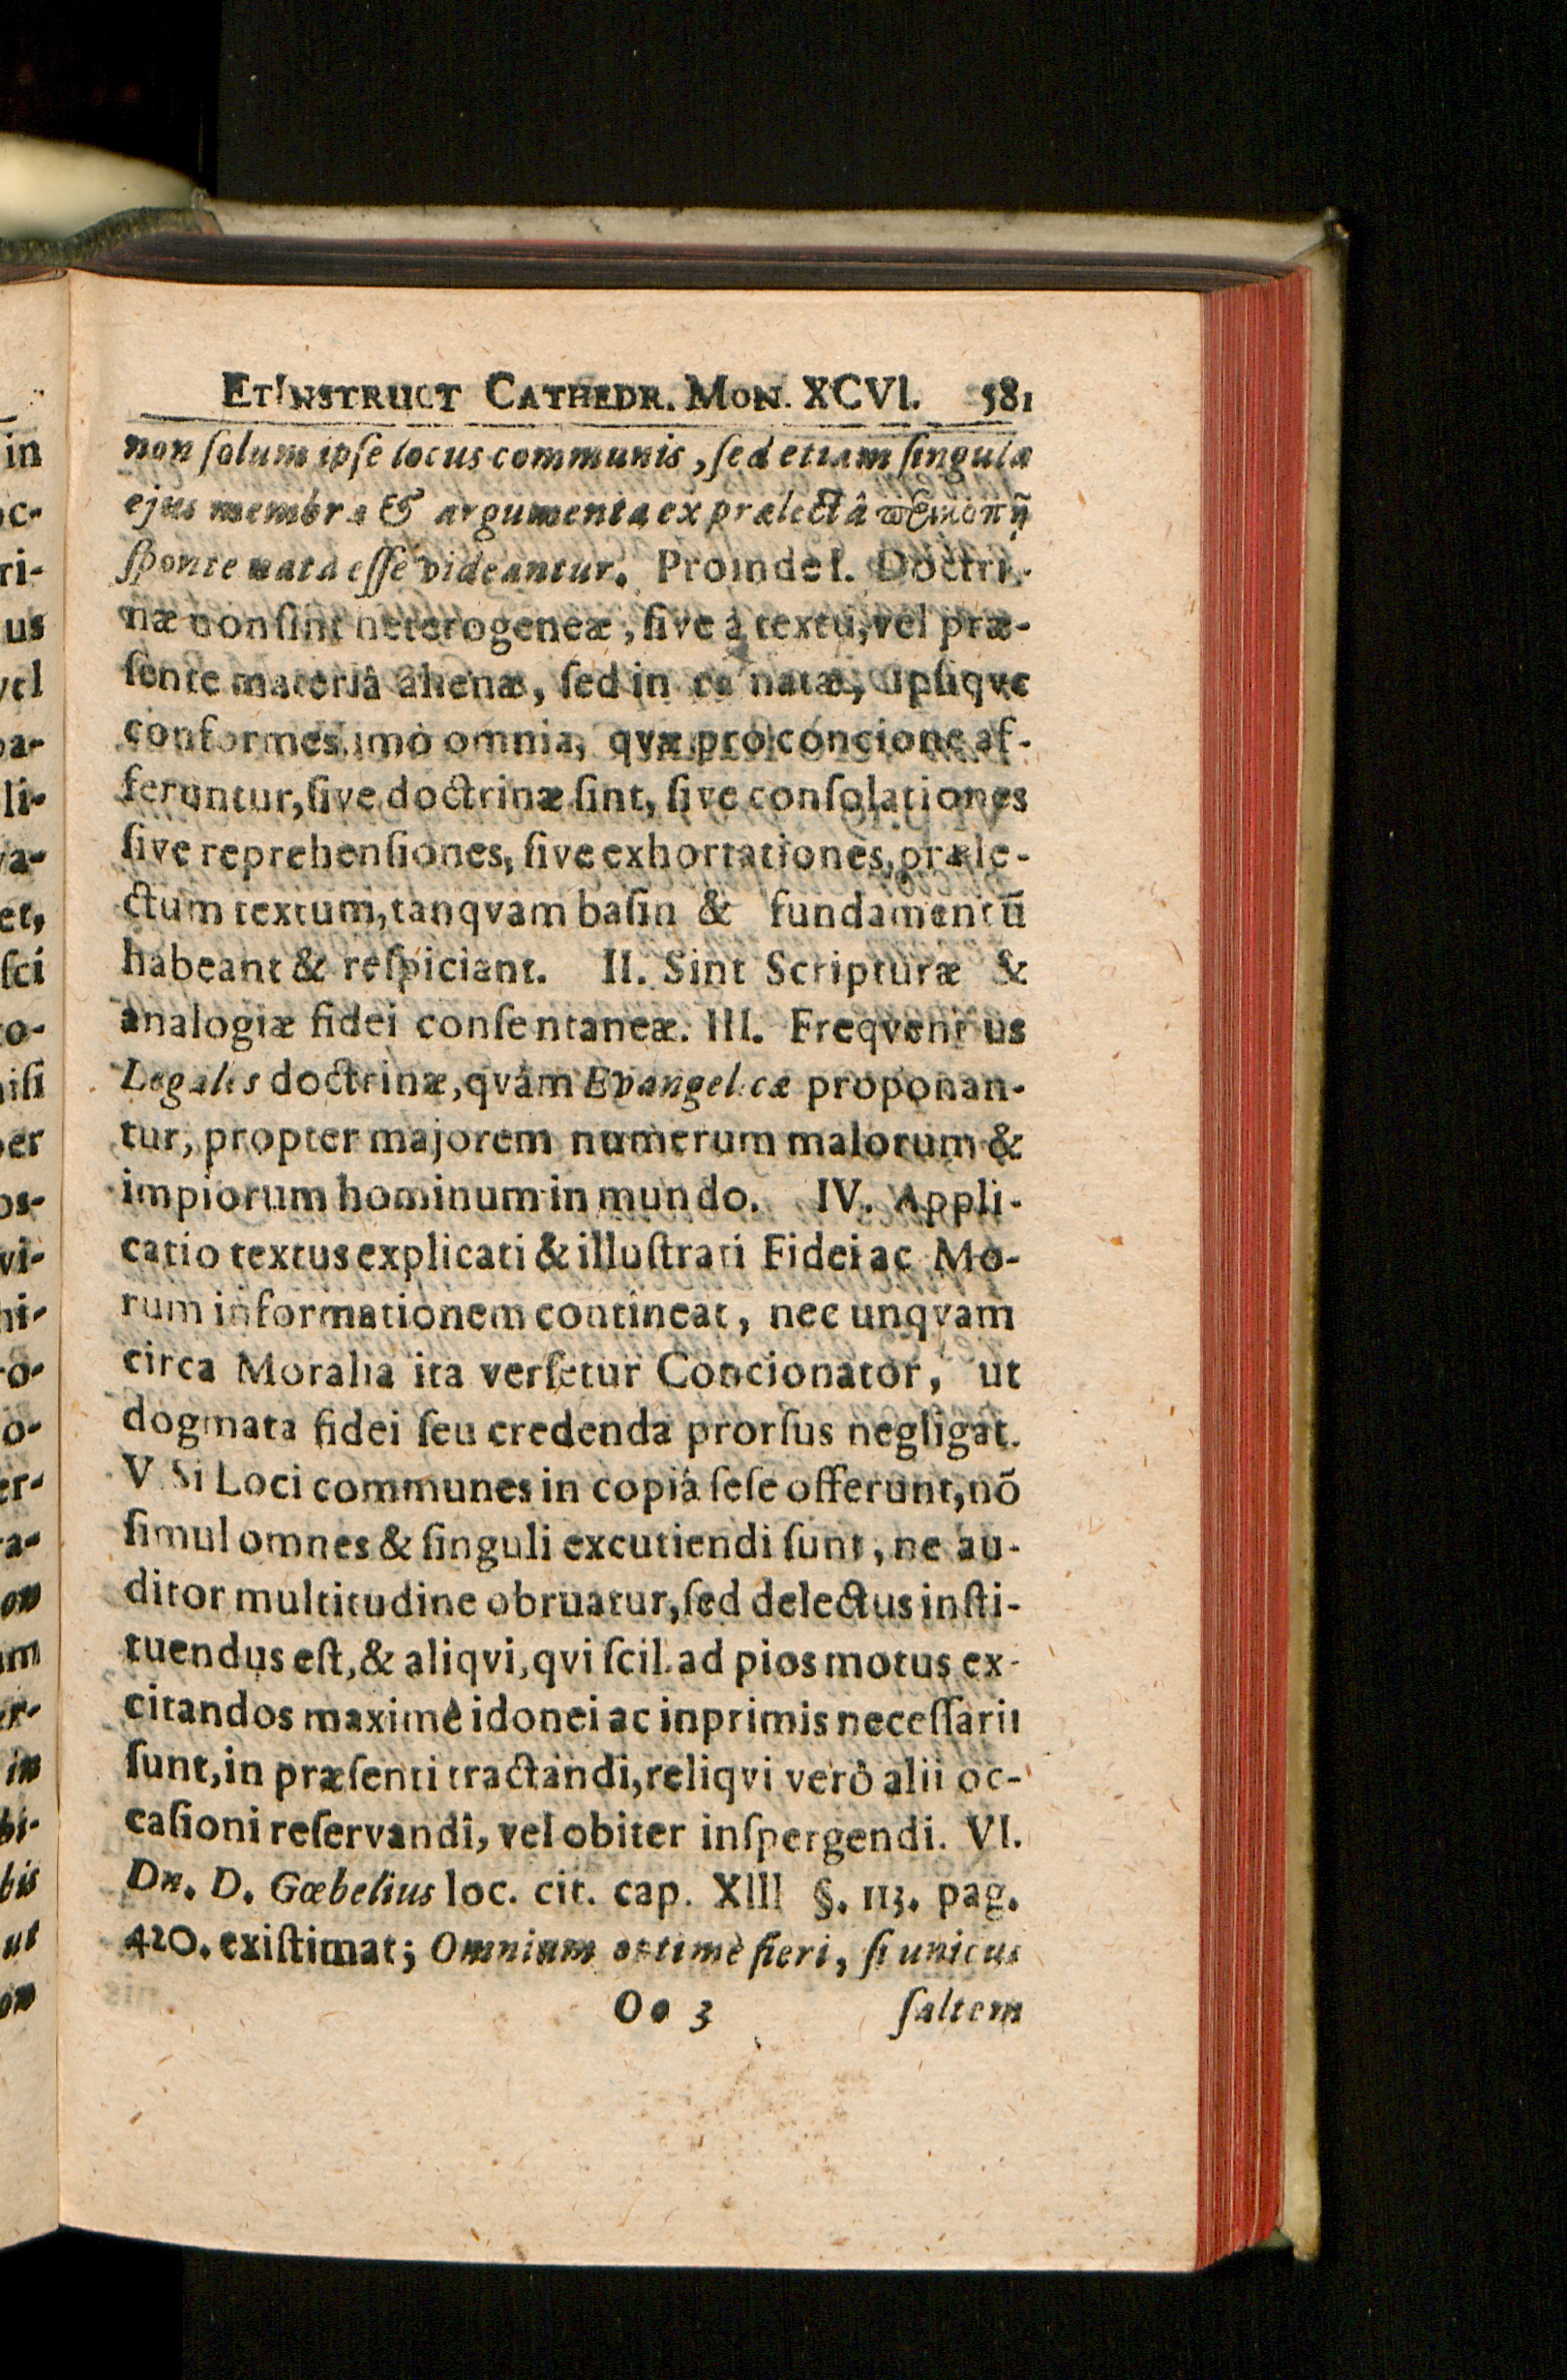 ET INSTRUCT CATHEDR. MON. XCVI. 581
non ſolum ipſe locus communis, ſed etiam ſingula
ejus membra & argumenta ex prælectâ
ſponte nata eſſe videantur. Proinde I. Doctri-
næ non ſint heterogeneæ, ſive à textu, vel præ-
ſente materiâ alienæ, ſed in ea natæ, ipſiqve
conformes, imò omnia, qvæ pro concione af-
feruntur, ſive doctrinæ ſint, ſive conſolationes
ſive reprehenſiones, ſive exhortationes, præle-
ctum textum, tanqvam baſin & fundamentū
habeant & reſpiciant. II. Sint Scripturæ &
analogiæ fidei conſentaneæ. III. Freqventius
Legales doctrinæ, qvàm Evangelicæ proponan-
tur, propter majorem numerum malorum &
impiorum hominum in mundo. IV. Appli-
catio textus explicati & illuſtrati Fidei ac Mo-
rum informationem contineat, nec unqvam
circa Moralia ita verſetur Concionator, ut
dogmata fidei ſeu credenda prorſus negligat.
V. Si Loci communes in copiâ ſeſe offerunt, nō
ſimul omnes & ſinguli excutiendi ſunt, ne au-
ditor multitudine obruatur, ſed delectus inſti-
tuendus eſt, & aliqvi, qvi ſcil. ad pios motus ex-
citandos maximè idonei ac inprimis neceſſarii
ſunt, in præſenti tractandi, reliqvi verò alii oc-
caſioni reſervandi, vel obiter inſpergendi. VI.
Dn. D. Gœbelius loc. cit. cap. XIII §. 113. pag.
420. exiſtimat; Omnium optimè fieri, ſi unicus
Oo 3 ſaltem